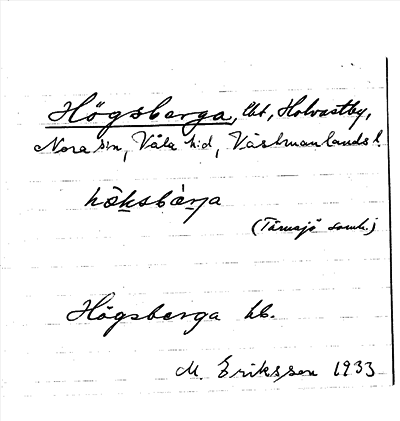 Högsberga, lht, Holvastby,
Nora sn, Våla hd, Västmanlands l.
hö̱ksbà̱rja
(Tärnsjö samh.)
Högsberga hb.
M. Eriksson 1933